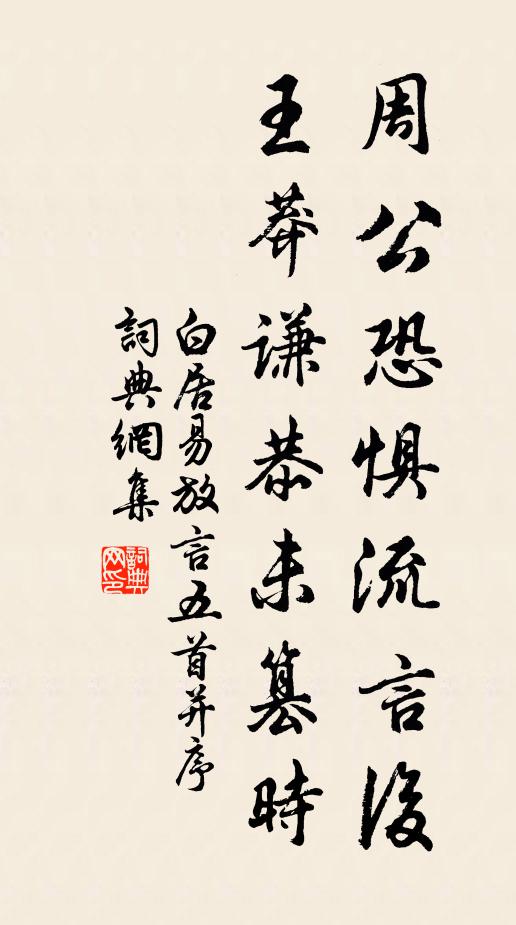 周公恐懼流言後
王莽謙恭未篡時
白居易放言五首并序
詞典網集
詞典網印